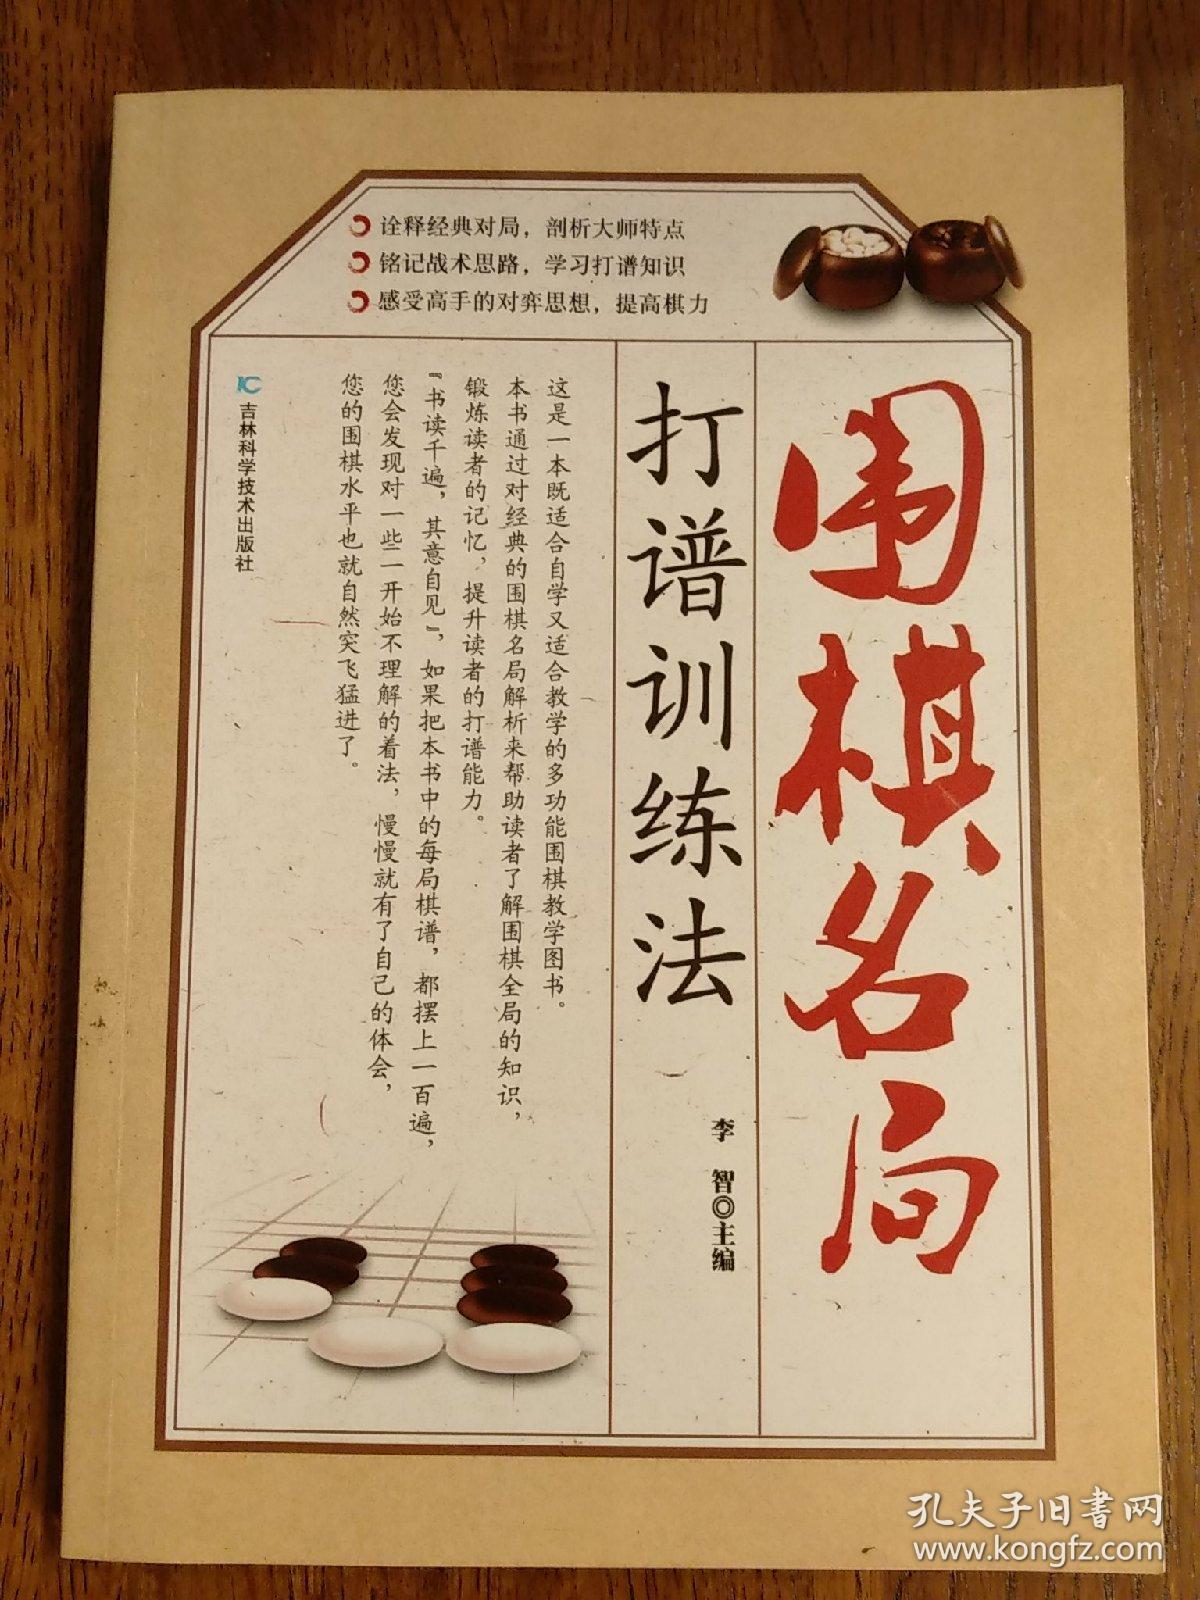 诠释经典对局，剖析大师特点
铭记战术思路，学习打谱知识
感受高手的对弈思想，提高棋力
围棋名局
打谱训练法
李 智◎主编
这是一本既适合自学又适合教学的多功能围棋教学图书。
本书通过对经典的围棋名局解析来帮助读者了解围棋全局的知识，
锻炼读者的记忆，提升读者的打谱能力。
“书读千遍，其意自见”，如果把本书中的每局棋谱，都摆上一百遍，
您会发现对一些一开始不理解的着法，慢慢就有了自己的体会，
您的围棋水平也就自然突飞猛进了。
吉林科学技术出版社
孔夫子旧书网
www.kongfz.com